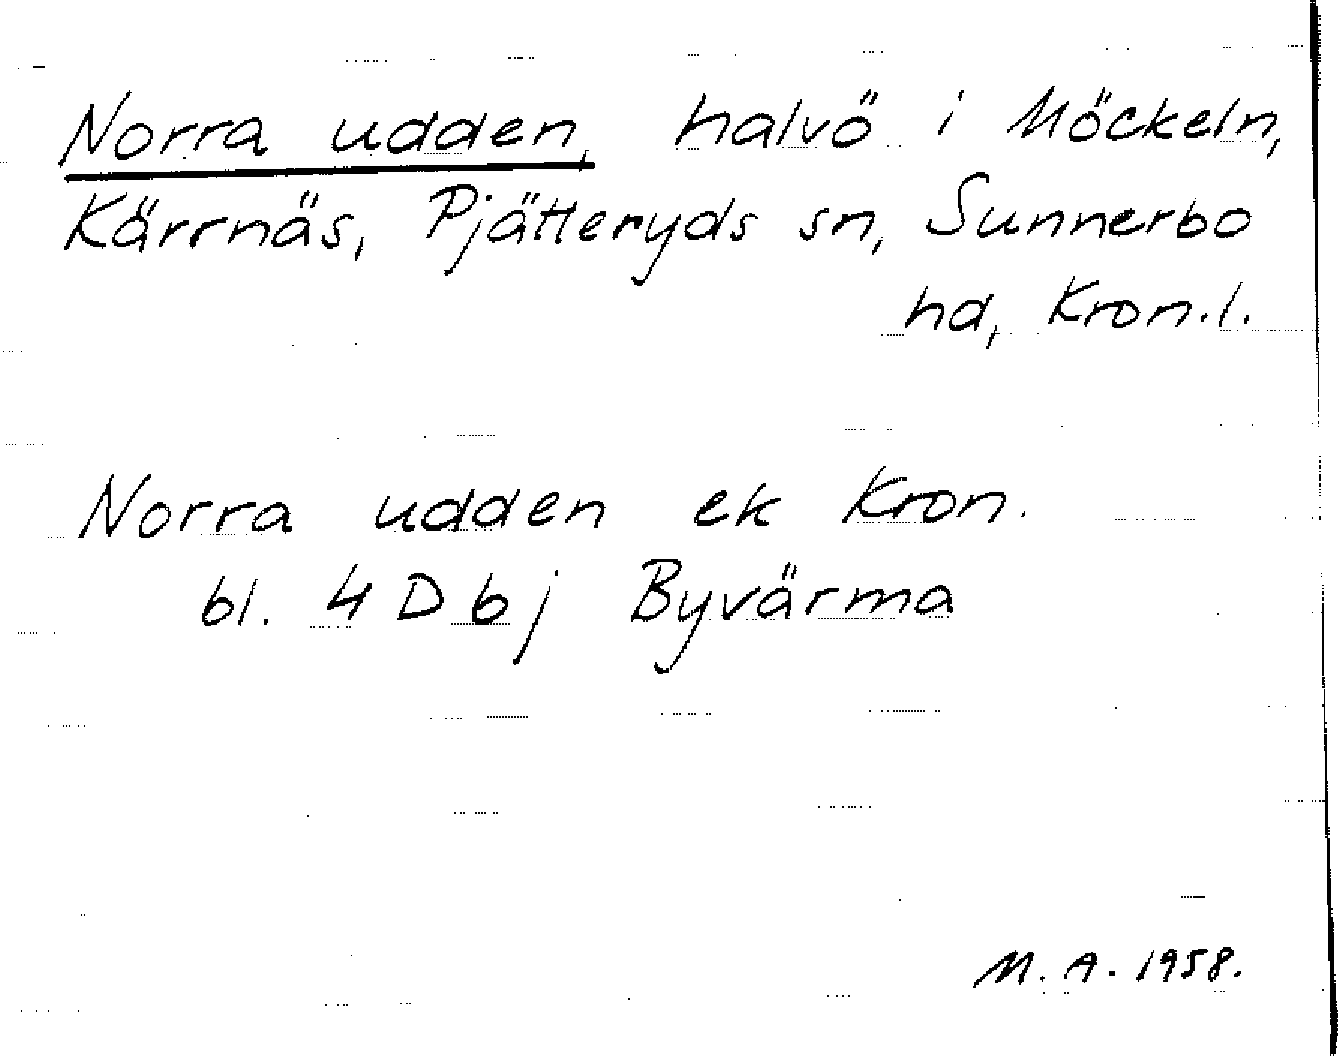 Norra udden, halvö i Möckeln,
Kärrnäs, Pjätteryds sn, Sunnerbo
hd, Kron.l.
Norra udden ek Kron.
bl. 4 D b j Byvärma
M.A. 1958.